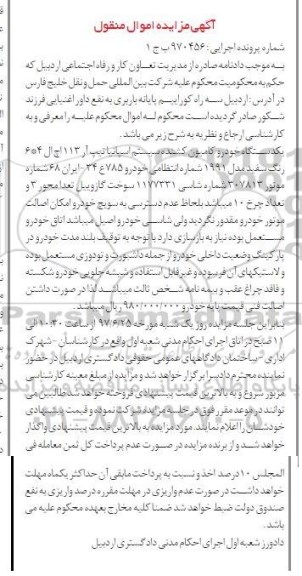 آگهی مزایده اموال منقول
شماره پرونده اجرایی: ۹۷۰۴۵۶ ب ج ۱
به موجب دادنامه صادره از مدیریت تعاون کار و رفاه اجتماعی اردبیل که
حکم به محکومیت محکوم علیه شرکت بین المللی حمل و نقل خلیج فارس
در آدرس: اردبیل سه راه کوراییم پایانه باربری به نفع داور اغنیایی فرزند
شکور صادر گردیده است محکوم له اموال محکوم علیه را معرفی و به
کارشناسی ارجاع و نظریه به شرح زیر می باشد.
یکدستگاه خودرو کامیون کشنده سیستم اسکانیا تیپ آر 113 اچ ال 4×6
رنگ سفید مدل ۱۹۹۱ شماره انتظامی خودرو ۷۸۵ع۳۴- ایران ۶۸ شماره
موتور ۳۰۷۸۱۳ شماره شاسی ۱۱۷۷۳۳۱ سوخت گازوییل تعداد محور ۳ و
تعداد چرخ ۱۰ میباشد بلحاظ عدم دسترسی به سویچ خودرو امکان اصالت
موتور خودرو مقدور نگردید ولی شاسی خودرو اصیل میباشد اتاق خودرو
مستعمل بوده نیاز به بازسازی دارد با توجه به توقیف بلند مدت خودرو در
پارکینگ وضعیت داخلی خودرو از جمله داشبورت و تودوزی مستعمل بوده
و لاستیکهای آن فرسوده و غیر قابل استفاده و شیشه جلویی خودرو شکسته
و فاقد چراغ عقب و بیمه نامه شخص ثالث میباشد لذا در صورت داشتن
اصالت فنی قیمت پایه خودرو ۹۸۰/۰۰۰/۰۰۰ ریال میباشد.
بنابراین جلسه مزایده روز یک شنبه مورخه ۹۷/۶/۲۵ از ساعت ۱۰:۳۰ الی
۱۱ صبح در اتاق اجرای احکام مدنی شعبه اول واقع در کارشناسان - شهرک
اداری - ساختمان دادگاههای عمومی حقوقی دادگستری اردبیل در حضور
نماینده محترم دادسرا برگزار خواهد شد و مزایده از مبلغ معینه کارشناسی
مزبور شروع و به بالاترین قیمت پیشنهادی فروخته خواهد شد طالبین می
توانند در موعد مقرر فوق در جلسه مزایده شرکت نموده و قیمت پیشنهادی
خودشان را اعلام نمایند. مورد مزایده به بالاترین قیمت پیشنهادی واگذار
خواهد شد و از برنده مزایده در صورت عدم پرداخت کل ثمن معامله فی
المجلس ۱۰ درصد اخذ و نسبت به پرداخت مابقی آن حداکثر یکماه مهلت
خواهد داشت در صورت عدم واریزی در مهلت مقرره درصد واریزی به نفع
صندوق دولت ضبط خواهد شد ضمنا کلیه مخارج بعهده محکوم علیه می
باشد.
دادورز شعبه اول اجرای احکام مدنی دادگستری اردبیل